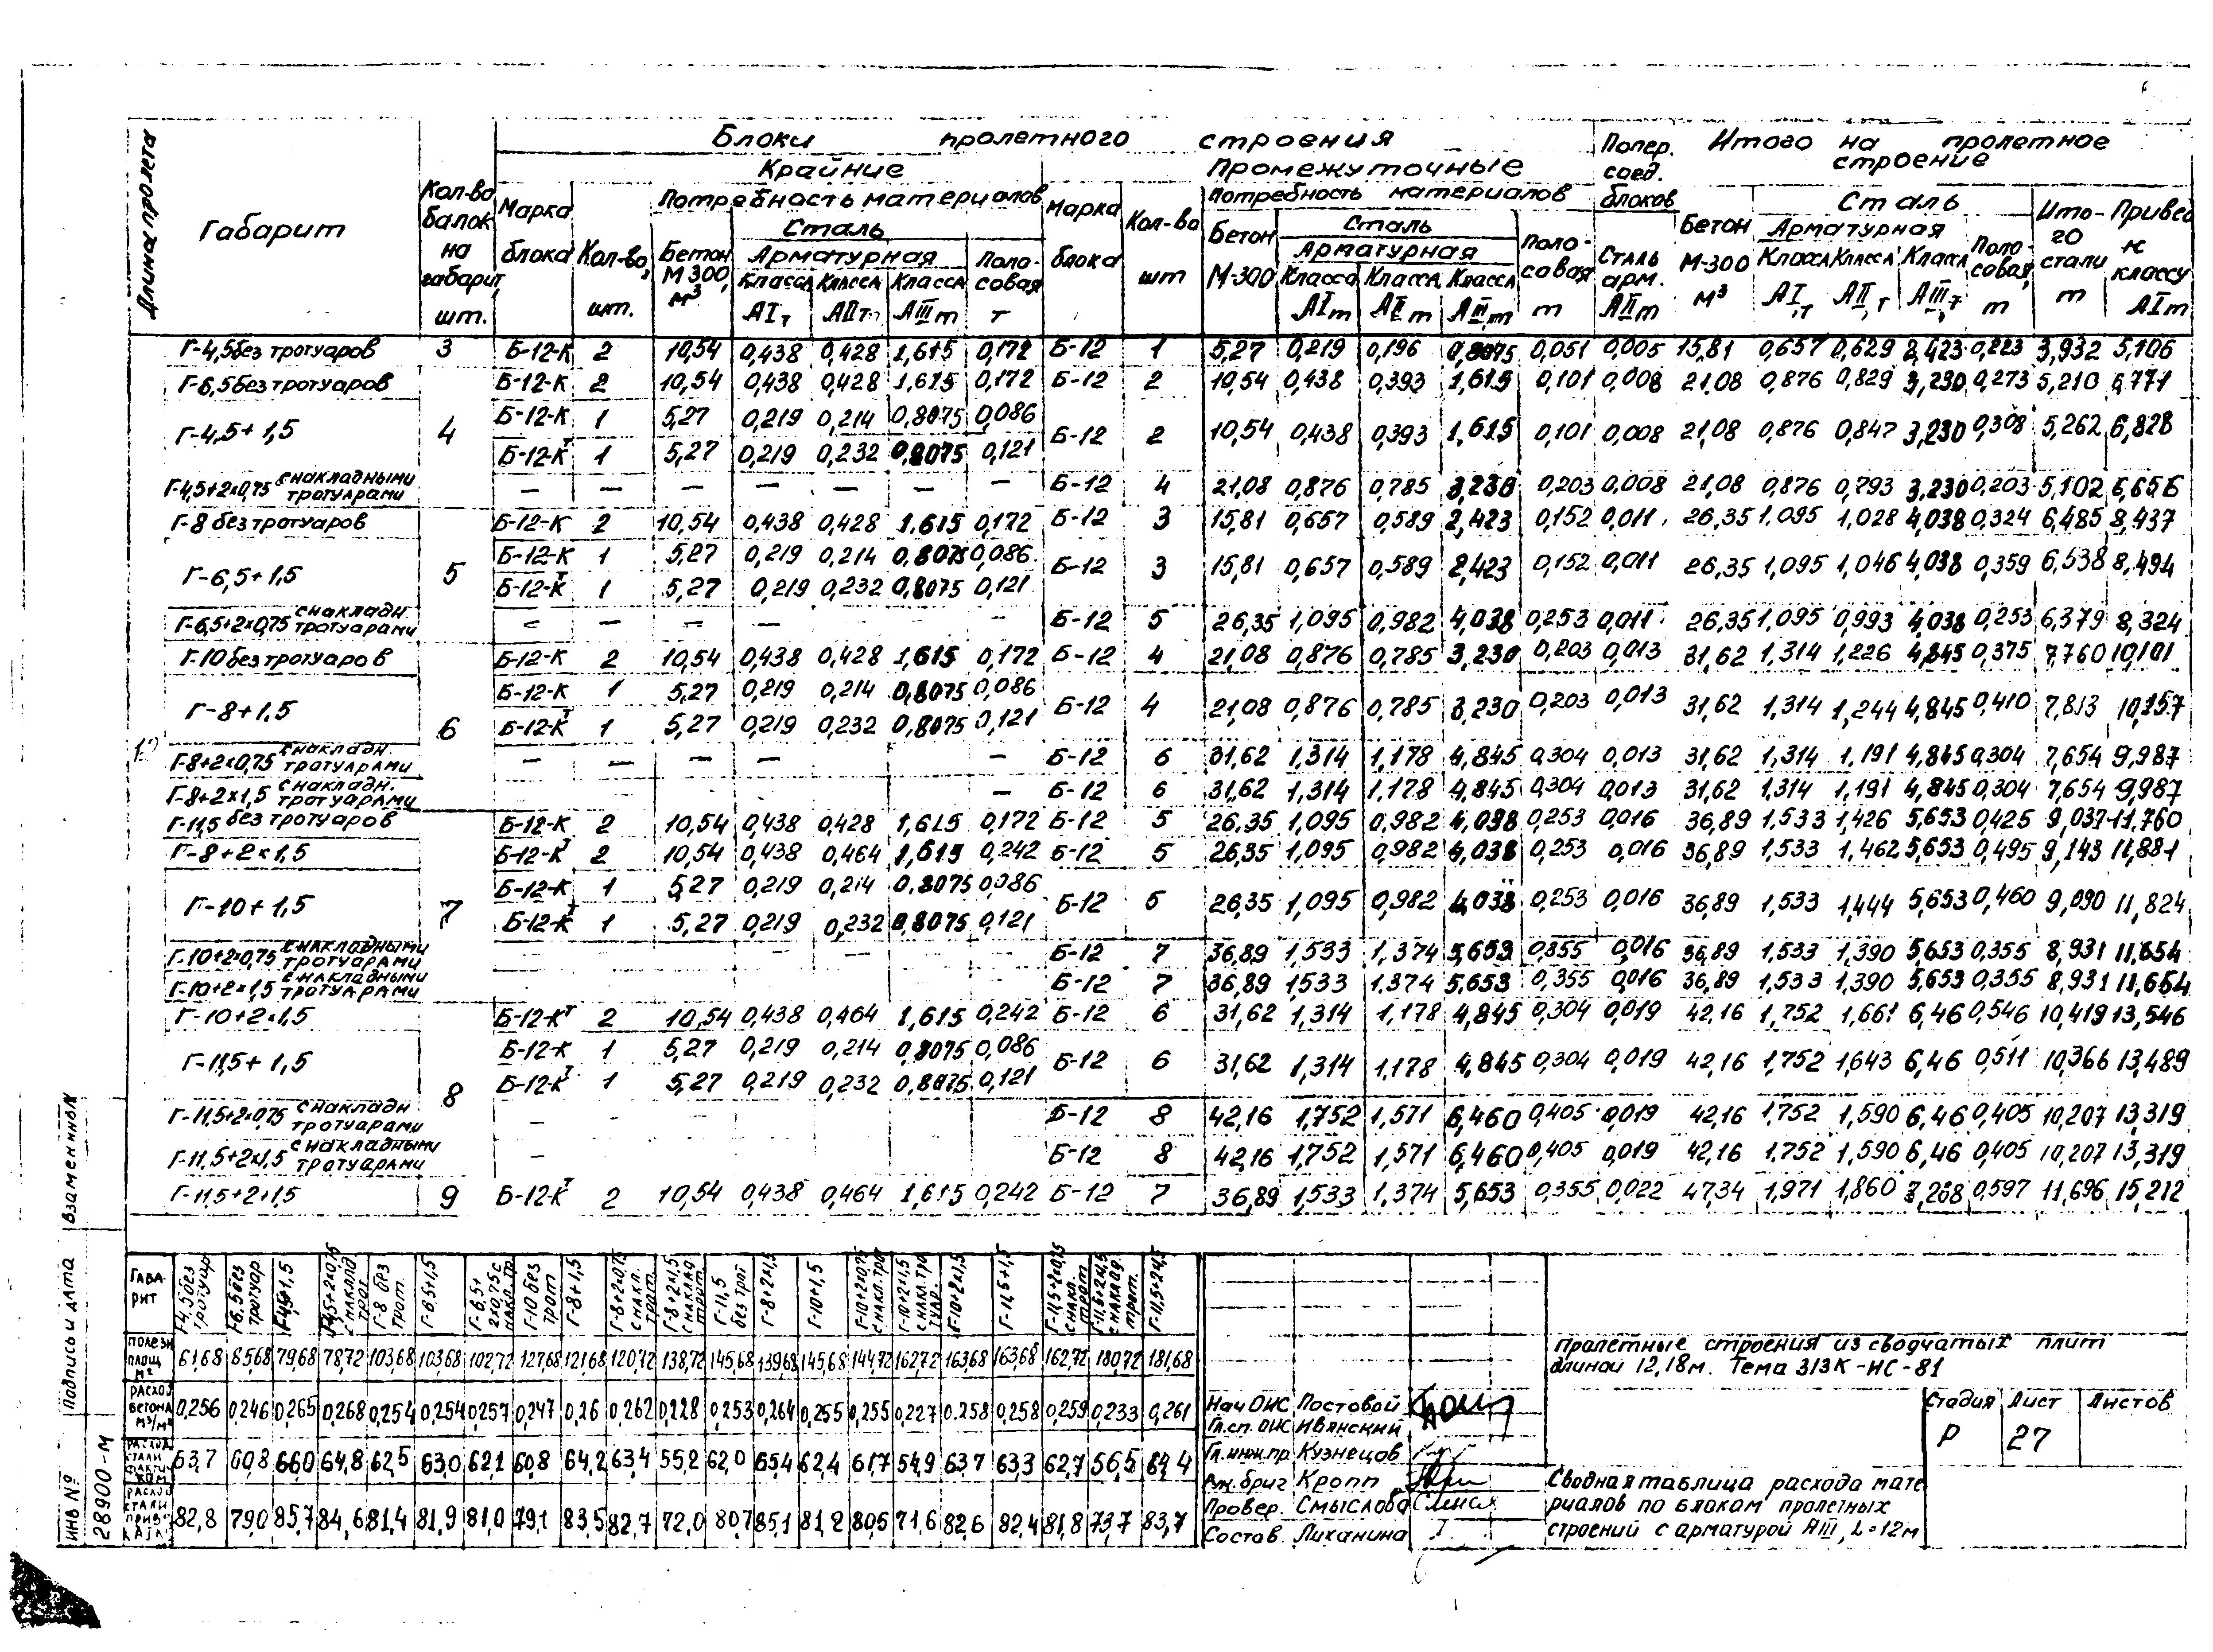 Блоки пролетного строения
Крайние
Промежуточные
Попер. соед. блоков
Итого на пролетное строение
Длина пролета
Габарит
Кол-во балок на габарит, шт.
Марка блока
Кол-во, шт.
Потребность материалов
Бетон М300, м³
Сталь
Арматурная
Класса АI, т
Класса АII т
Класса АIII т
Полосовая т
Марка блока
Кол-во шт
Потребность материалов
Бетон М-300
Сталь
Арматурная
Класса АI т
Класса АII т
Класса АIII т
Полосовая т
Сталь арм. АII т
Бетон М-300 м³
Сталь
Арматурная
Класса АI, т
Класса АII, т
Класса АIII, т
Полосовая, т
Итого стали т
Привед к классу АI т
Г-4,5 без тротуаров 3 Б-12-К 2 10,54 0,438 0,428 1,615 0,172 Б-12 1 5,27 0,219 0,196 0,8075 0,051 0,005 15,81 0,657 0,629 2,423 0,223 3,932 5,106
Г-6,5 без тротуаров Б-12-К 2 10,54 0,438 0,428 1,615 0,172 Б-12 2 10,54 0,438 0,393 1,615 0,101 0,008 21,08 0,876 0,829 3,230 0,273 5,210 6,771
4
Г-4,5+1,5 Б-12-К 1 5,27 0,219 0,214 0,8075 0,086
Б-12-Кт 1 5,27 0,219 0,232 0,8075 0,121
Б-12 2 10,54 0,438 0,393 1,615 0,101 0,008 21,08 0,876 0,847 3,230 0,308 5,262 6,828
Г-4,5+2×0,75 с накладными тротуарами – – – – – – – Б-12 4 21,08 0,876 0,785 3,230 0,203 0,008 21,08 0,876 0,793 3,230 0,203 5,102 6,656
Г-8 без тротуаров Б-12-К 2 10,54 0,438 0,428 1,615 0,172 Б-12 3 15,81 0,657 0,589 2,423 0,152 0,011 26,35 1,095 1,028 4,038 0,324 6,485 8,437
5
Г-6,5+1,5 Б-12-К 1 5,27 0,219 0,214 0,8075 0,086
Б-12-Кт 1 5,27 0,219 0,232 0,8075 0,121
Б-12 3 15,81 0,657 0,589 2,423 0,152 0,011 26,35 1,095 1,046 4,038 0,359 6,538 8,494
Г-6,5+2×0,75 с накладн. тротуарами – – – – – Б-12 5 26,35 1,095 0,982 4,038 0,253 0,011 26,35 1,095 0,993 4,038 0,253 6,379 8,324
Г-10 без тротуаров Б-12-К 2 10,54 0,438 0,428 1,615 0,172 Б-12 4 21,08 0,876 0,785 3,230 0,203 0,013 31,62 1,314 1,226 4,845 0,375 7,760 10,101
6
Г-8+1,5 Б-12-К 1 5,27 0,219 0,214 0,8075 0,086
Б-12-Кт 1 5,27 0,219 0,232 0,8075 0,121
Б-12 4 21,08 0,876 0,785 3,230 0,203 0,013 31,62 1,314 1,244 4,845 0,410 7,813 10,157
Г-8+2×0,75 с накладн. тротуарами – – – – – Б-12 6 31,62 1,314 1,178 4,845 0,304 0,013 31,62 1,314 1,191 4,845 0,304 7,654 9,987
Г-8+2×1,5 с накладн. тротуарами – Б-12 6 31,62 1,314 1.178 4,845 0,304 0,013 31,62 1,314 1,191 4,845 0,304 7,654 9,987
Г-11,5 без тротуаров Б-12-К 2 10,54 0,438 0,428 1,615 0,172 Б-12 5 26,35 1,095 0,982 4,038 0,253 0,016 36,89 1,533 1,426 5,653 0,425 9,037 11,760
Г-8+2×1,5 Б-12-Кт 2 10,54 0,438 0,464 1,615 0,242 Б-12 5 26,35 1,095 0,982 4,038 0,253 0,016 36,89 1,533 1,462 5,653 0,495 9,143 11,881
7
Г-10+1,5 Б-12-К 1 5,27 0,219 0,214 0,8075 0,086
Б-12-Кт 1 5,27 0,219 0,232 0,8075 0,121
Б-12 5 26,35 1,095 0,982 4,038 0,253 0,016 36,89 1,533 1,444 5,653 0,460 9,090 11,824
Г-10+2×0,75 с накладными тротуарами Б-12 7 36,89 1,533 1,374 5,653 0,355 0,016 36,89 1,533 1,390 5,653 0,355 8,931 11,654
Г-10+2×1,5 с накладными тротуарами Б-12 7 36,89 1,533 1.374 5,653 0,355 0,016 36,89 1,533 1,390 5,653 0,355 8,931 11,654
Г-10+2×1,5 Б-12-Кт 2 10,54 0,438 0,464 1,615 0,242 Б-12 6 31,62 1,314 1,178 4,845 0,304 0,019 42,16 1,752 1,661 6,46 0,546 10,419 13,546
8
Г-11,5+1,5 Б-12-К 1 5,27 0,219 0,214 0,8075 0,086
Б-12-Кт 1 5,27 0,219 0,232 0,8075 0,121
Б-12 6 31,62 1,314 1.178 4,845 0,304 0,019 42,16 1,752 1,643 6,46 0,511 10,366 13,489
Г-11,5+2×0,75 с накладн тротуарами – Б-12 8 42,16 1,752 1,571 6,460 0,405 0,019 42,16 1,752 1,590 6,46 0,405 10,207 13,319
Г-11,5+2×1,5 с накладными тротуарами – Б-12 8 42,16 1,752 1,571 6,460 0,405 0,019 42,16 1.752 1,590 6,46 0,405 10,207 13,319
Г-11,5+2×1,5 9 Б-12-Кт 2 10,54 0,438 0,464 1,615 0,242 Б-12 7 36,89 1,533 1,374 5,653 0,355 0,022 47,34 1,971 1,860 7,268 0,597 11,696 15,212
Габарит Г-4,5 без тротуар Г-6,5 без тротуар Г-4,5+1,5 Г-4,5+2×0,75 с наклад трот Г-8 без трот. Г-6,5+1,5 Г-6,5+2×0,75 с накл. тр. Г-10 без трот Г-8+1,5 Г-8+2×0,75 с накл. трот. Г-8+2×1,5 с наклад трот. Г-11,5 без трот Г-8+2×1,5 Г-10+1,5 Г-10+2×0,75 с накл. трот Г-10+2×1,5 с накл. тротуар. Г-10+2×1,5 Г-11,5+1,5 Г-11,5+2×0,75 с накл. трот Г-11,5+2×1,5 с наклад. трот. Г-11,5+2×1,5
Полезн площ м² 61,68 85,68 79,68 78,72 103,68 103,68 102,72 127,68 121,68 120,72 138,72 145,68 139,68 145,68 144,72 162,72 163,68 163,68 162,72 180,72 181,68
Расход бетона м³/м² 0,256 0,246 0,265 0,268 0,254 0,254 0,257 0,247 0,26 0,262 0,228 0,253 0,264 0,255 0,255 0,227 0,258 0,258 0,259 0,233 0,261
Расход стали фактич 63,7 60,8 66,0 64,8 62,5 63,0 62,1 60,8 64,2 63,4 55,2 62,0 65,4 62,4 61,7 54,9 63,7 63,3 62,7 56,5 64,4
Расход стали прив. 82,8 79,0 85,7 84,6 81,4 81,9 81,0 79,1 83,5 82,7 72,0 80,7 85,1 81,2 80,5 71,6 82,6 82,4 81,8 73,7 83,7
Нач ОИС Постовой
Гл.сп.ОИС Ивянский
Гл.инж.пр Кузнецов
Рук.бриг Кропп
Провер. Смыслова
Состав. Лиханина
Пролетные строения из сводчатых плит
длиной 12,18м. Тема 313К-ИС-81
Стадия Лист Листов
Р 27
Сводная таблица расхода мате
риалов по блокам пролетных
строений с арматурой АIII, L=12м
Взамен инв N
Подпись и дата
ИНВ Nº
28900-М